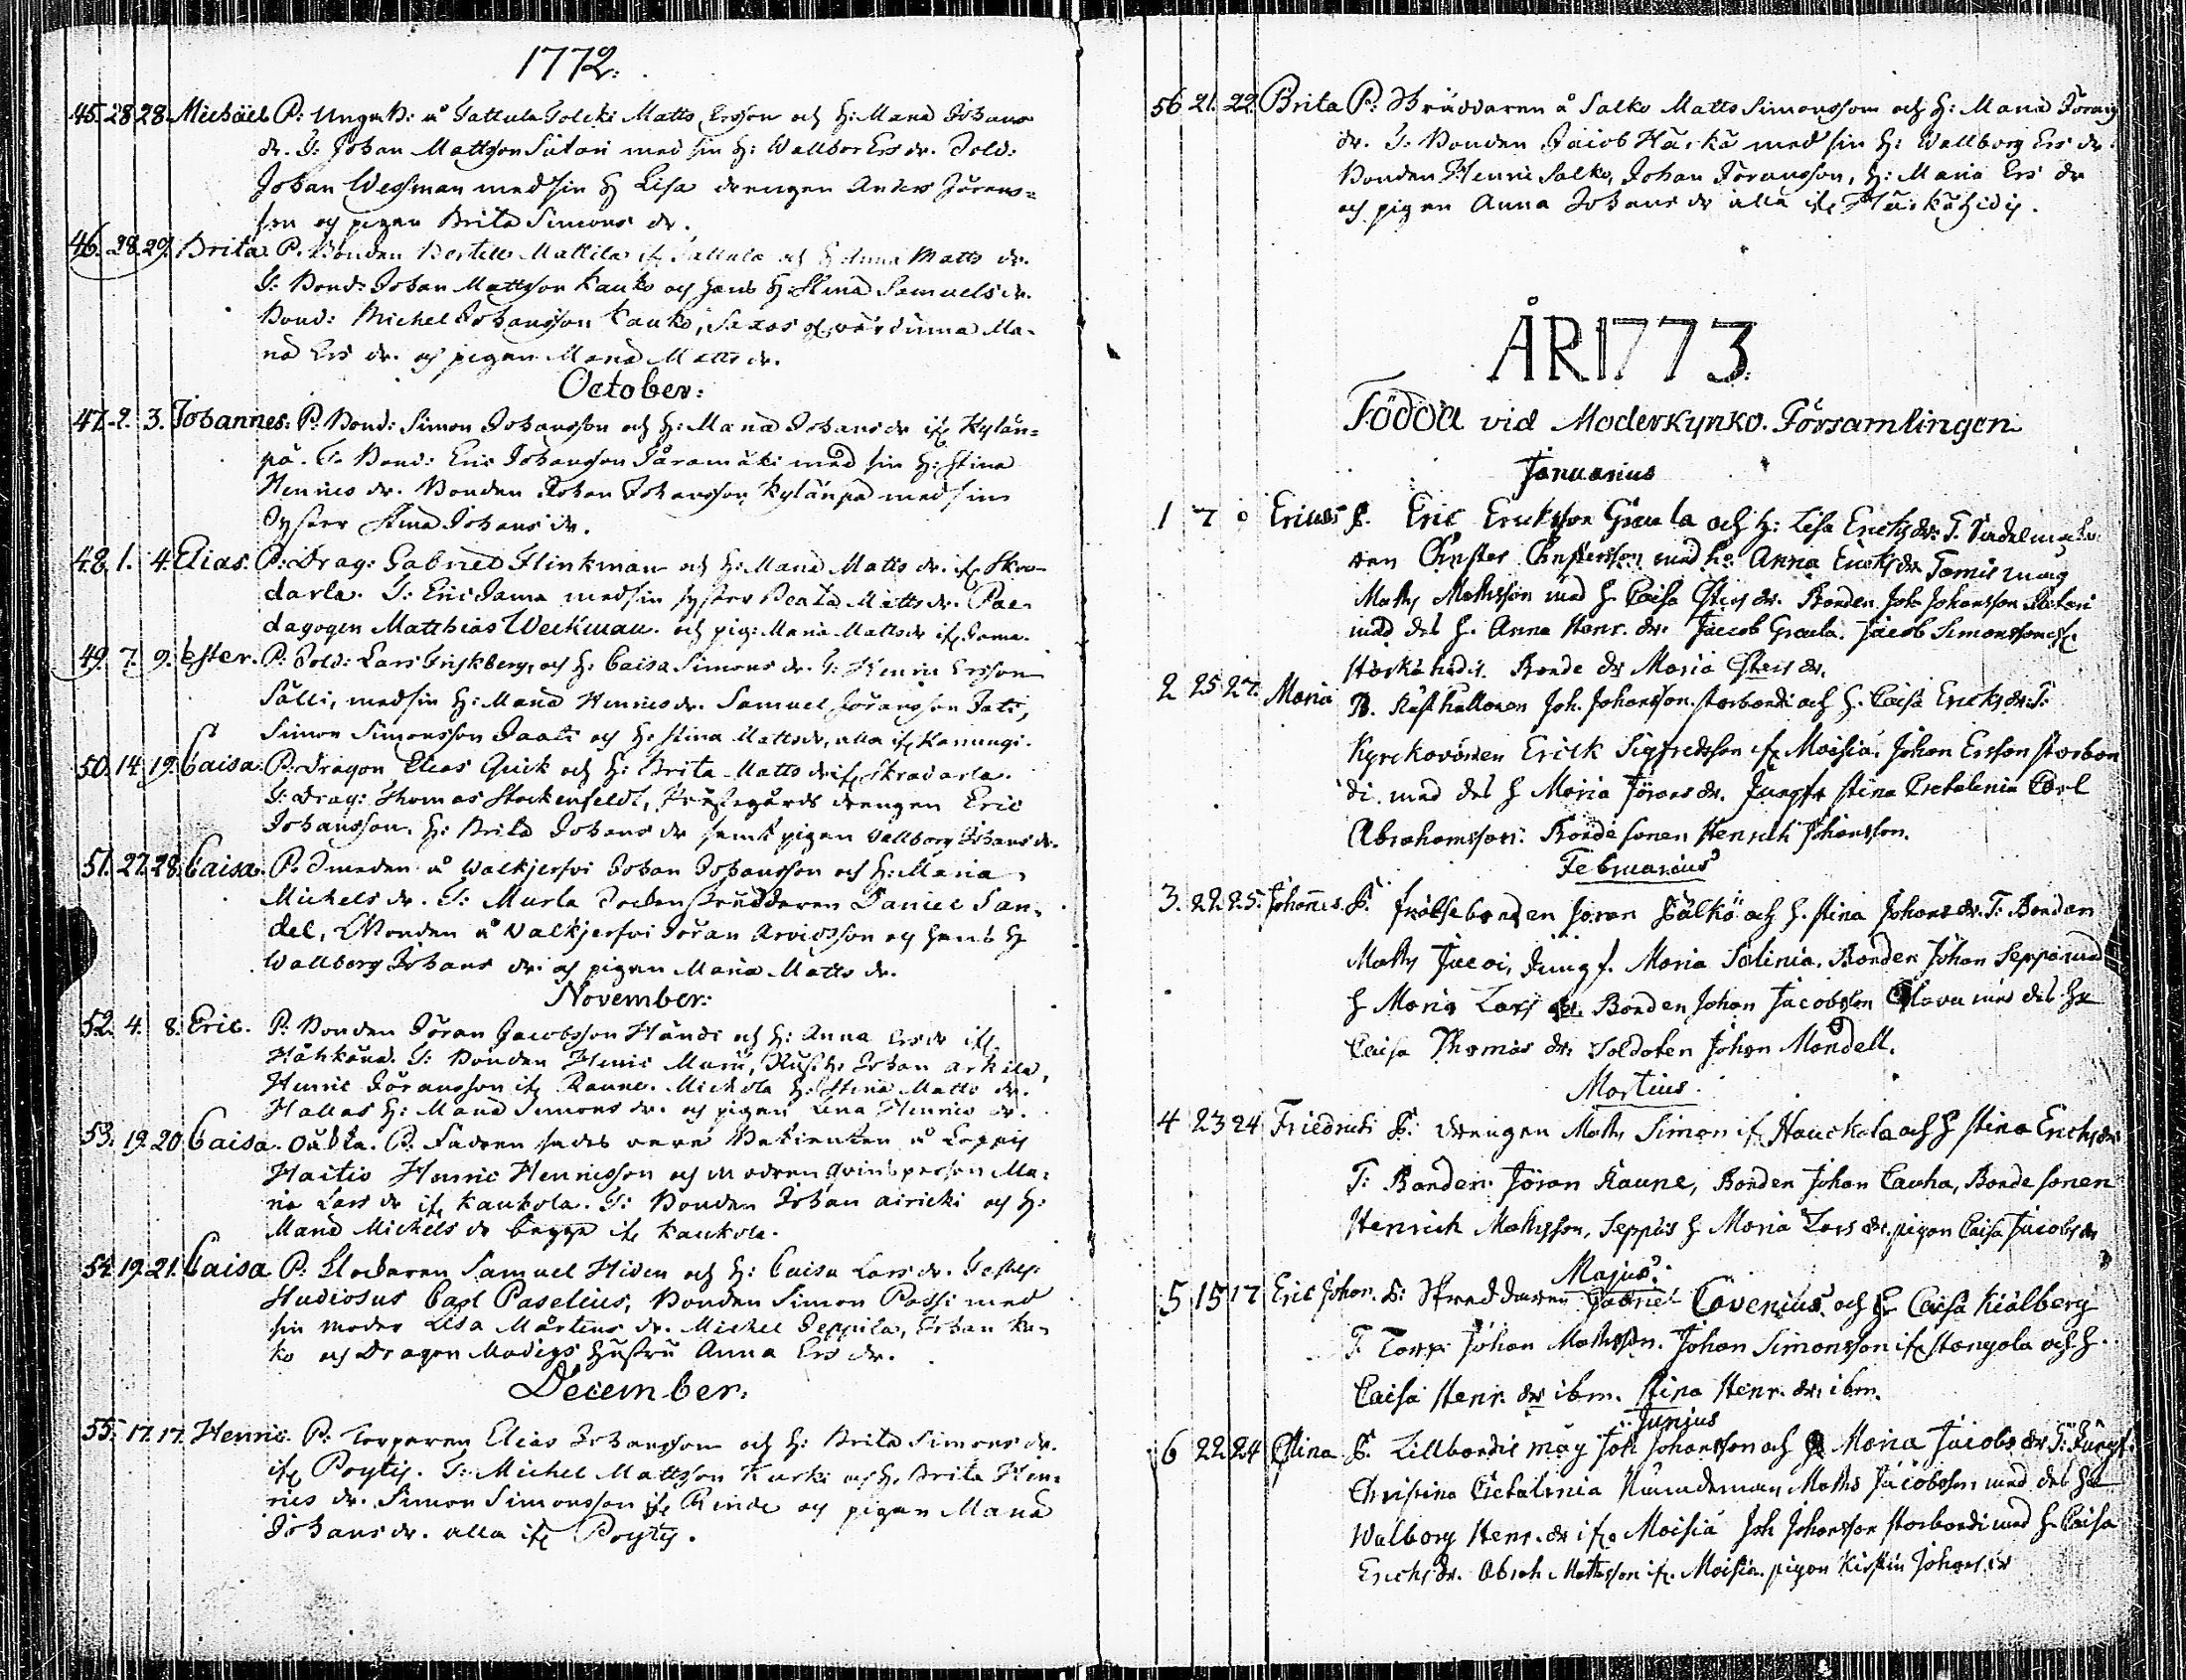 1772.
45. 28 28. Michäel P: Ungk: å Sattula Solcki Matts Ersson och h: Maria Johans
dr. T: Johan Mattsson Sutari med sin h: Wallbor Ers dr. Sold:
Johan Wessman med sin h Lisa drengen Anders Jörans=
son och pigan Brita Simons dr.
46. 28. 29. Brita P. Bonden Bertill Mattila if. Sattula och h: Anna Matts dr.
T: Bond: Johan Mattsson Kauko och hans h: Stina Samuels dr.
Bond: Michel Johansson Kauko, värdinna Ma-
ria Ers dr. och pigan Maria Matts dr.
October:
47. 2. 3. Johannes. P: Bond: Simon Johansson och h: Maria Johans dr if. Kylän=
pä. T. Bond: Eric Johansson Såramäki med sin h: Stina
Henrics dr. Bonden Johan Johansson Kylänpä med sin
Syster Stina Johans dr.
48. 1. 4. Elias. P: Drag: Gabriel Flinkman och h: Maria Matts dr. if. Skra-
darla. T: Eric Jama med sin syster Beata Matts dr. Pae-
dagogen Matthias Weckman. och pig: Maria Matts dr if. Jama.
49. 7. 9. Ester. P: Sold: Lars Friskberg, och h: Caisa Simons dr. T: Henric Ersson
Sälli, med sin h: Maria Henrics dr. Samuel Göransson Jati,
Simon Simonsson Jaati och h: Stina Matts dr, alla if. Kanungi.
50. 14. 19. Caisa. P: dragon Elias Quick och h: Brita Matts dr if. Skradarla.
T: Drag: Thomas Stockenfeldt, Prästegårds drengen Eric
Johansson. h: Brita Johans dr samt pigan Vallborg Johans dr.
51. 27. 28. Caisa. P. Smeden å Walkjerfvi Johan Johansson och h: Maria
Michels dr. T: Murla Sockenskräddaren Daniel San-
del, Bonden å Valkjerfvi Jöran Arvidsson och hans h
Wallborg Johans dr. och pigan Maria Matts dr.
November:
52. 4. 8. Eric. P: Bonden Jöran Jacobsson Händi och h: Anna Ers dr if.
T: Bonden Henric Muru, Rusth: Johan Arkila,
Henric Jöransson if. Raune. Mickola h: Stina Matts dr.
Hallas h: Maria Simons dr. och pigan Lena Henrics dr.
53. 19. 20 Caisa. Oäkta. P. Fadren sades vara Patienten å
Haitis Henric Henricsson och modren qvinsperson Ma-
ria Lars dr if. Kaukola. T: Bonden Johan Airicki och h:
Maria Michels dr begge if. Kaukola.
54. 19. 21. Caisa P: Klockaren Samuel Hiden och h: Caisa Lars dr.
Studiosus Carl Paselius, Bonden Simon Possi med
sin moder Lisa Mårtens dr. Michel Seppila, Johan Ku-
ko och Dragon Modigs hustru Anna Ers dr.
December.
55. 17. 17. Henric. P: Torparen Elias Johansson och h: Brita Simons dr.
if. Poytis. T: Michel Mattsson Kurki och h: Brita Hen-
rics dr. Simon Simonsson if. Rinda och pigan Maria
Johans dr. alla if. Poytis.
56 21. 22. Brita P: Skräddaren å Salko Matts Simonsson och h: Maria Jörans
dr. T: Bonden Jacob Härkä med sin h: Wallborg Ers dr.
Bonden Henric Salko, Johan Jöransson, h: Maria Ers dr
och pigan Anna Johans dr alla if. Härkähidis.
ÅR 1773.
Födda vid Moderkyrko. Församlingen
Januarius
1 7 Ericus P. Eric Ericksson Graula och h: Lisa Ericks dr. T. Sadelmaka-
ren Christer Christersson med h: Anna Ericks dr
Maths Mathsson med h Caisa dr. Bonden Joh Johansson
med des h. Anna Henr. dr. Jacob Graula. Jacob Simonsson if.
Härkähidis. Bonde dr Maria dr.
2 25 27. Maria P. Rusthållaren Joh. Johansson. storbondi och h. Caisa Ericks dr. T:
Kyrckovärden Erick Sigfredsson if. Moisia. Johan Ersson storbon
di. med des h Maria Jörans dr. Jungfr Stina Cretalenia Carl
Abrahamsson. Bonde sonen Henrich Johansson.
Februarius
3. 22. 25. Johannes. P. frälsebonden Jöran Sälkö och h. Stina Johans dr. T. Bonden
Maths Jacoi, Jungf. Maria Salinia. Bonden Johan Seppä med
h Maria Lars dr. Bonden Johan Jacobsson Clava med des hu
Caisa Thomas dr. Soldaten Johan Mandell.
Martius.
4 23 24 Friedrich P: drengen Maths Simon if Hauckola och h Stina Ericks dr
T: Bonden Jöran Raune, Bonden Johan Cauha, Bonde sonen
Henrich Mathsson, Seppäs h Maria Lars dr. pigan Caisa Jacobs dr
Majus.
5 15 17 Eric Johan. P: Skreddaren Gabriel Covenius och h Caisa Kialberg
T. Torp: Johan Mathsson. Johan Simonsson if Stangola och h
Caisa Henr. dr ibm. Stina Henr. dr. ibm.
Junius
6 22 24 Stina P. Lillbondis måg Joh Johansson och h Maria Jacobs dr T: Jungf:
Christina Cretalenia Nämdeman Maths Jacobsson med des hu
Walborg Henr. dr if. Moisia Joh Johansson storbondi med h. Caisa
Ericks dr. Abrah Mathsson if. Moisia. pigan Kirstin Johans dr